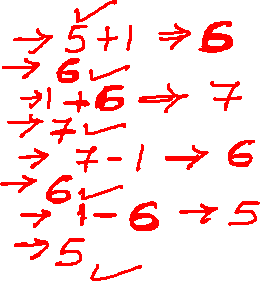 → 5+1 ⇒ 6
→ 6 ✓
→ 1+6 ⇒ 7
→ 7 ✓
→ 7-1 → 6
→ 6 ✓
→ 1-6 → 5
→ 5 ✓